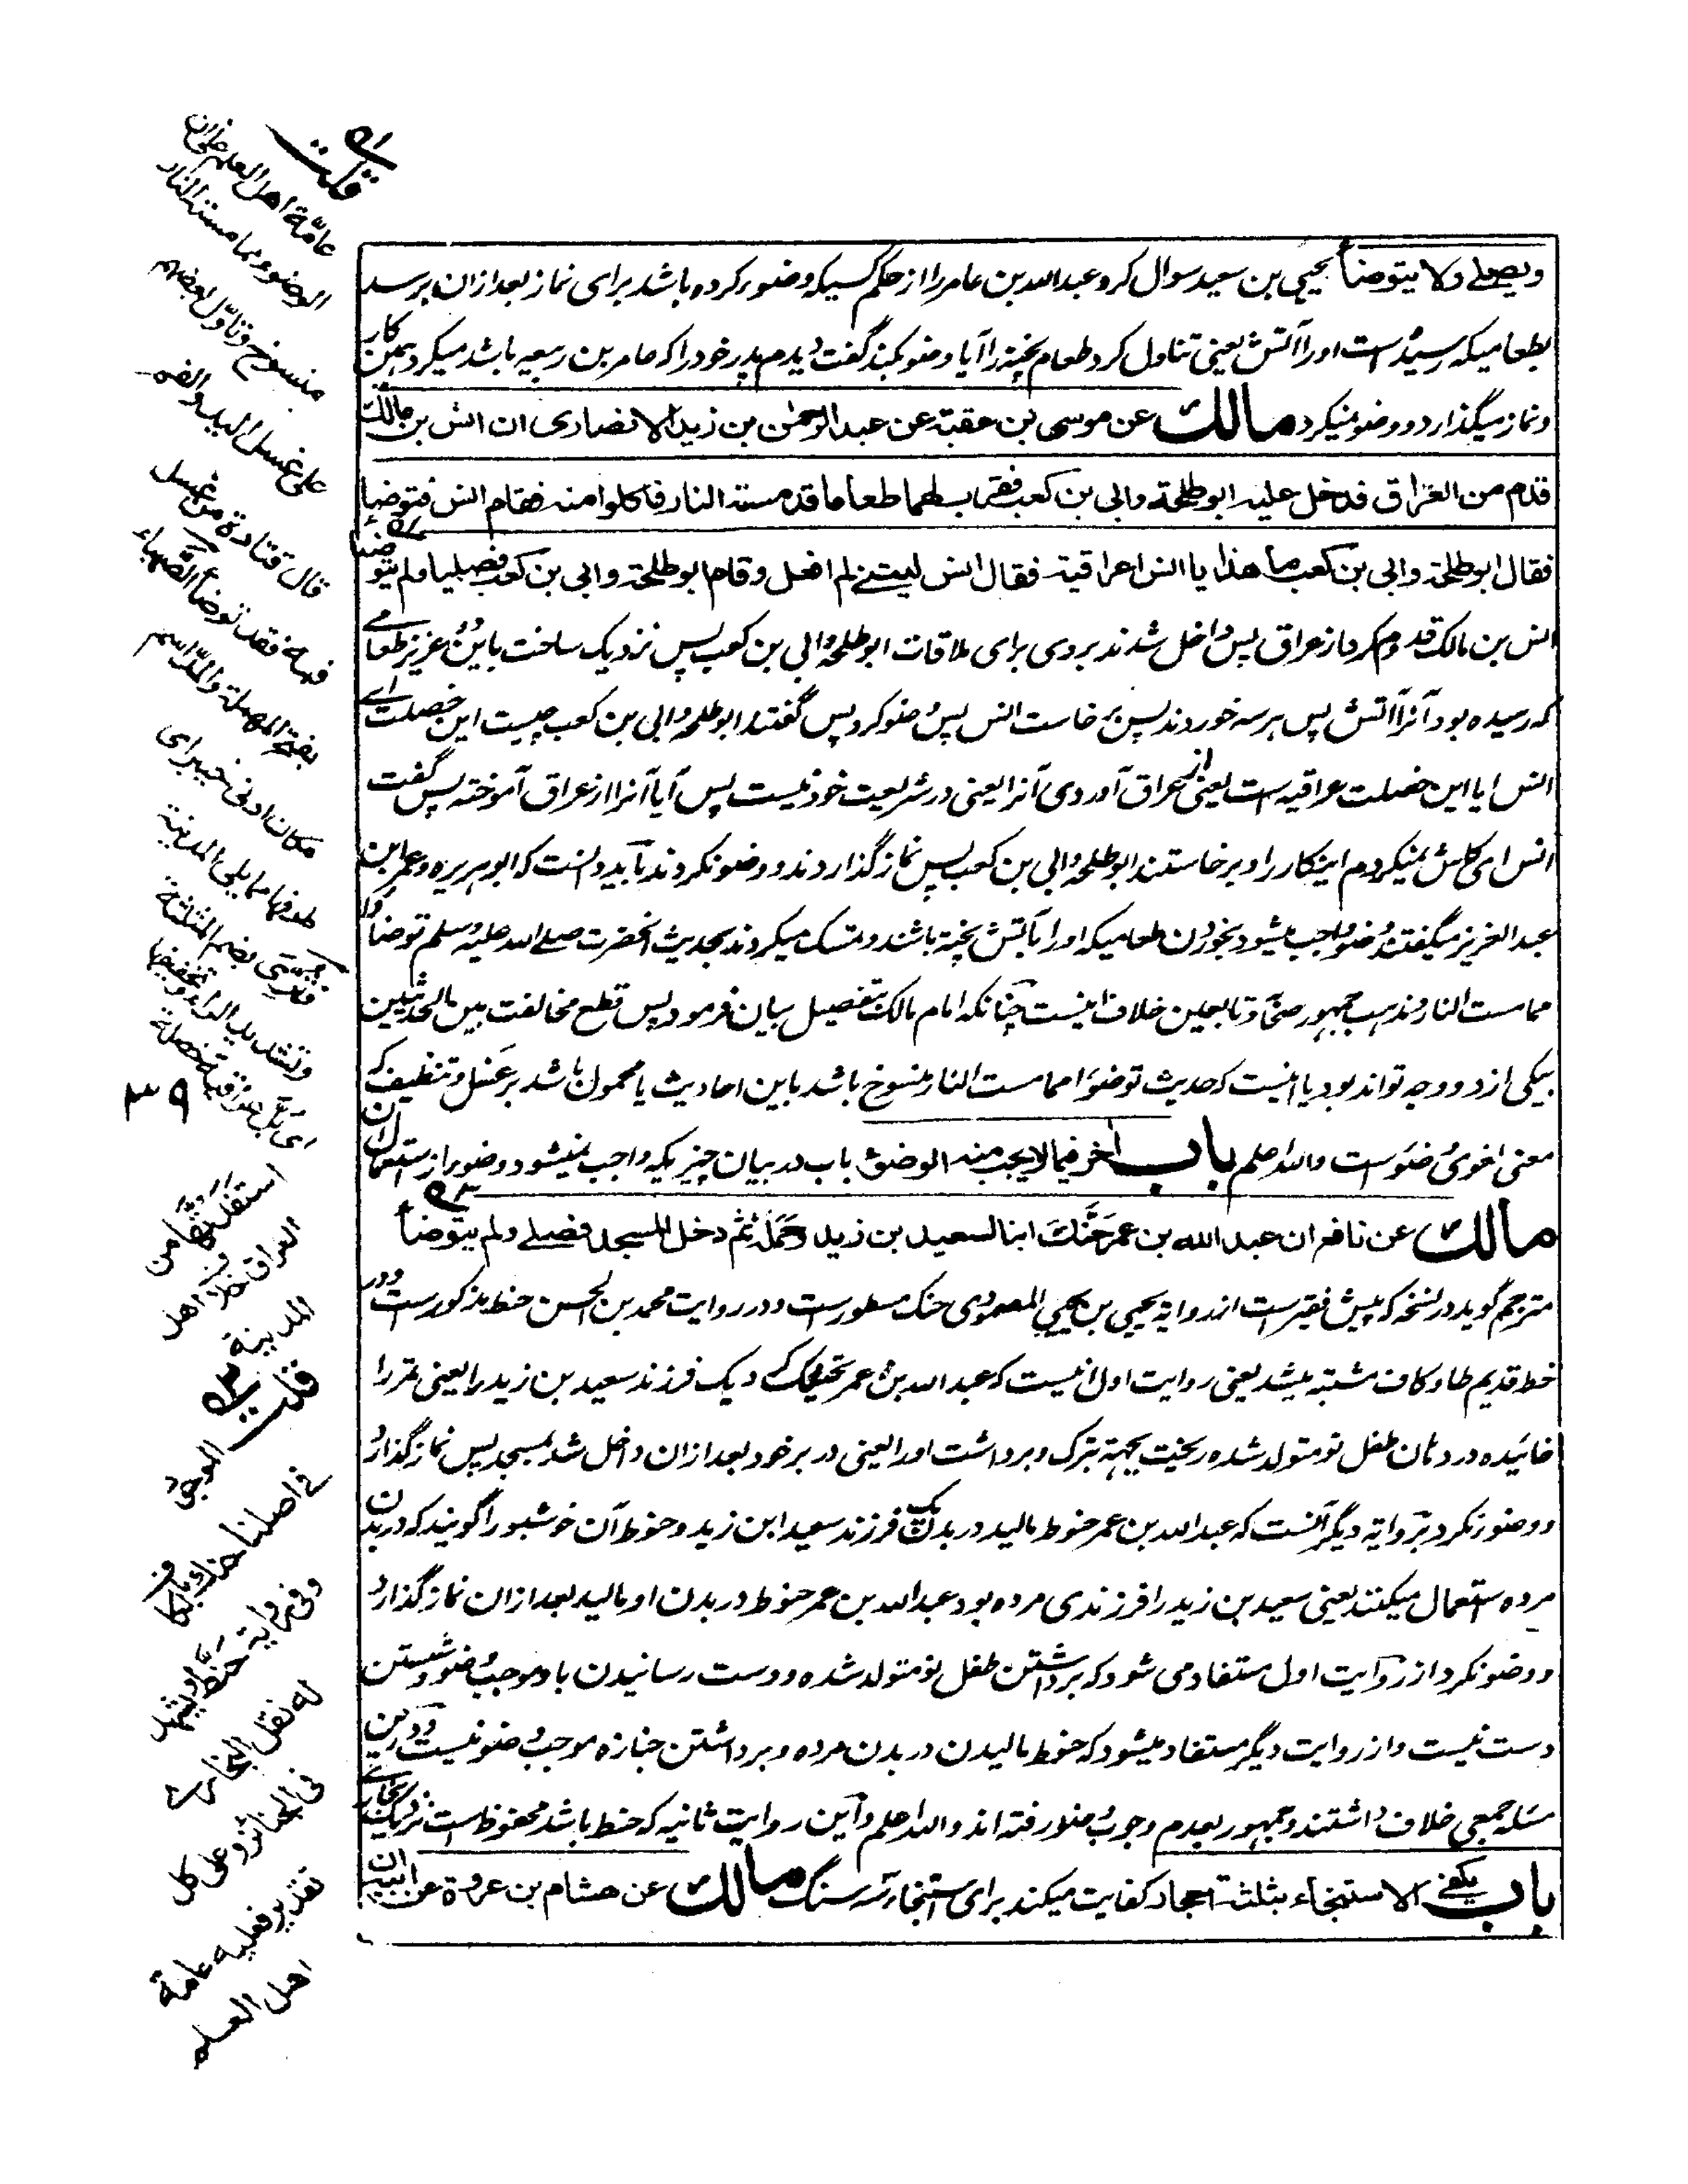 ويصلے ولا يتوضأ يحيى بن سعيد سوال كرد عبد الله بن عامر را از حكم كسيكه وضو كرده باشد براى نماز بعد ازان برسد
بطعاميكه رسيده است اورا آتش يعنى تناول كرد طعام پخته را آيا وضو كند گفت ديدم پدر خود را كه عامر بن ربيعه باشد ميكرد همين كار
ونماز ميگذارد و وضو نميكرد مالك عن موسى بن عقبة عن عبد الرحمن بن زيد الانصارى ان انس بن مالك
قدم من العراق فدخل عليه ابو طلحة وابى بن كعب فقرب لهما طعاما قد مسته النار فاكلوا منه فقام انس فتوضأ
فقال ابو طلحة وابى بن كعب ما هذا يا انس اعراقية فقال انس ليتنے لم افعل وقام ابو طلحة وابى بن كعب فصليا ولم يتوضئا
انس بن مالك قدوم كرد از عراق پس داخل شدند بروى براى ملاقات ابو طلحه وابى بن كعب پس نزديك ساخت باين دو عزيز طعامے
كه رسيده بود آنرا آتش پس هر سه خوردند پس برخاست انس پس وضو كرد پس گفتند ابو طلحه وابى بن كعب چيست اين خصلت اے
انس ايا اين خصلت عراقيه است يعنى از عراق آوردى آنرا يعنى در شريعت خود نيست پس آيا آنرا از عراق آموخته پس گفت
انس اى كاش نميكردم اينكار را و برخاستند ابو طلحه وابى بن كعب پس نماز گذاردند و وضو نكردند بايد دانست كه ابو هريره وعمر بن
عبد العزيز ميگفتند وضو واجب ميشود بخوردن طعاميكه اورا بآتش پخته باشند وتمسك ميكردند بحديث آنحضرت صلے الله عليه وسلم توضأوا
مما مست النار ومذهب جمهور صحابه وتابعين خلاف اينست چنانكه امام مالك بتفصيل بيان فرمود پس قطع مخالفت بين الحديثين
بيكى از دو وجه تواند بود يا اينست كه حديث توضؤا مما مست النار منسوخ باشد باين احاديث يا محمول باشد بر غسل وتنظيف كه
معنى لغوى وضو است والله اعلم باب آخر فيما لا يجب منه الوضوء باب در بيان چيزيكه واجب نميشود وضو از استعمال ان
مالك عن نافع ان عبد الله بن عمر حنك ابنا لسعيد بن زيد وحمله ثم دخل المسجد فصلے ولم يتوضأ
مترجم گويد در نسخه كه پيش فقير است از روايه يحيى بن يحيى المصمودى حنك مسطور است ودر روايت محمد بن الحسن حنط مذكور است ودر
خط قديم طا وكاف مشتبه ميشد يعنى روايت اول انيست كه عبد الله بن عمر تحنيك كرد يك فرزند سعيد بن زيد را يعنى تمر را
خائيده در دهان طفل نو متولد شده ريخت بجهة تبرك وبرداشت اورا يعنى در بر خود بعد ازان داخل شد بمسجد پس نماز گذارد
و وضو نكرد و روايه ديگر آنست كه عبد الله بن عمر حنوط ماليد در بدن يك فرزند سعيد ابن زيد وحنوط آن خوشبو را گويند كه در بدن
مرده استعمال ميكنند يعنى سعيد بن زيد را فرزندى مرده بود عبد الله بن عمر حنوط در بدن او ماليد بعد ازان نماز گذارد
و وضو نكرد از روايت اول مستفاد مى شود كه برداشتن طفل نو متولد شده ودست رسانيدن باو موجب وضو وشستن
دست نيست واز روايت ديگر مستفاد ميشود كه حنوط ماليدن در بدن مرده وبرداشتن جنازه موجب وضو نيست ودرين
مسئله جمعى خلاف داشتند وجمهور بعدم وجوب وضو رفته اند والله اعلم وآين روايت ثانيه كه حنط باشد محفوظ است نزديك بخارے
باب يكفے الاستنجاء بثلثة احجار كفايت ميكند براى استنجاء سه سنگ مالك عن هشام بن عروة عن ابيه ان
قلت
عامة اهل العلم على ان
الوضوء مما مسته النار
منسوخ وتاول بعضهم
على غسل اليد والفم
قال قتادة من غسل
فمه فقد توضأ الصهباء
بفتح المهملة والمد اسم
مكان ادنى خيبر اى
طرفها مما يلى المدينة
فثرى بضم المثلثة
وتشديد الراء وتخفيفها
اى بل عراقية خصلة
٣٩
العراق خلاف اهل
المدينة
قلت
الموجود
فے اصلنا حنك بالكاف
وفى رواية حنط ويشهد
له نقل البخارى
فى الجنائز وعلى كل
تقدير فعليه عامة
اهل العلم